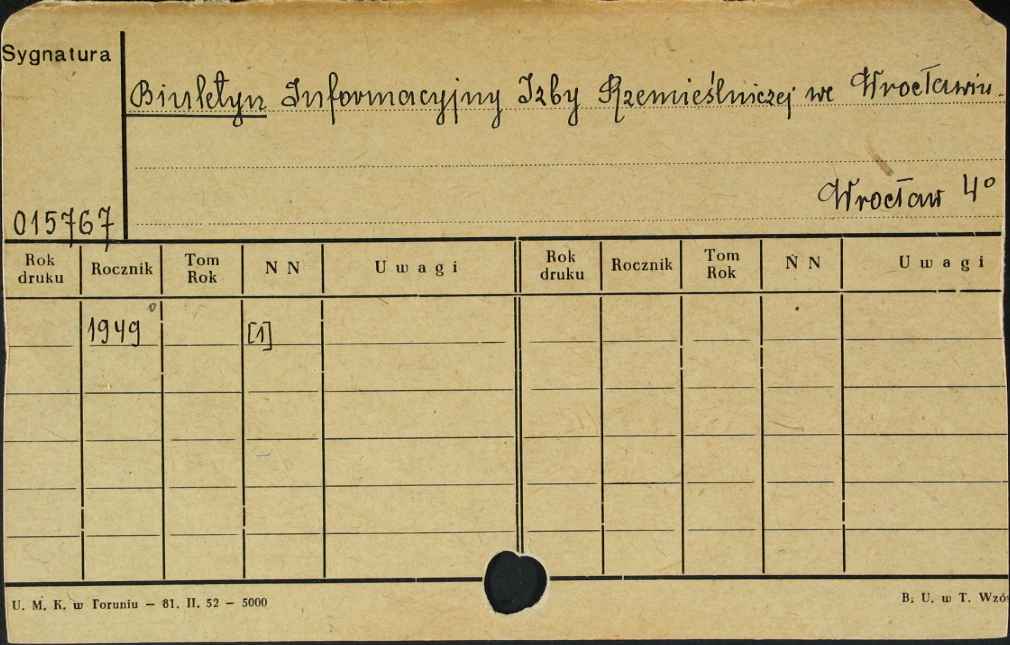 Sygnatura
Biuletyn Informacyjny Izby Rzemieślniczej we Wrocławiu.
Wrocław 4°
015767
Rok druku Rocznik Tom Rok N N Uwagi Rok druku Rocznik Tom Rok N N Uwagi
1949 [1]
U. M. K. w Toruniu — 81. II. 52 — 5000 B. U. w T. Wzó